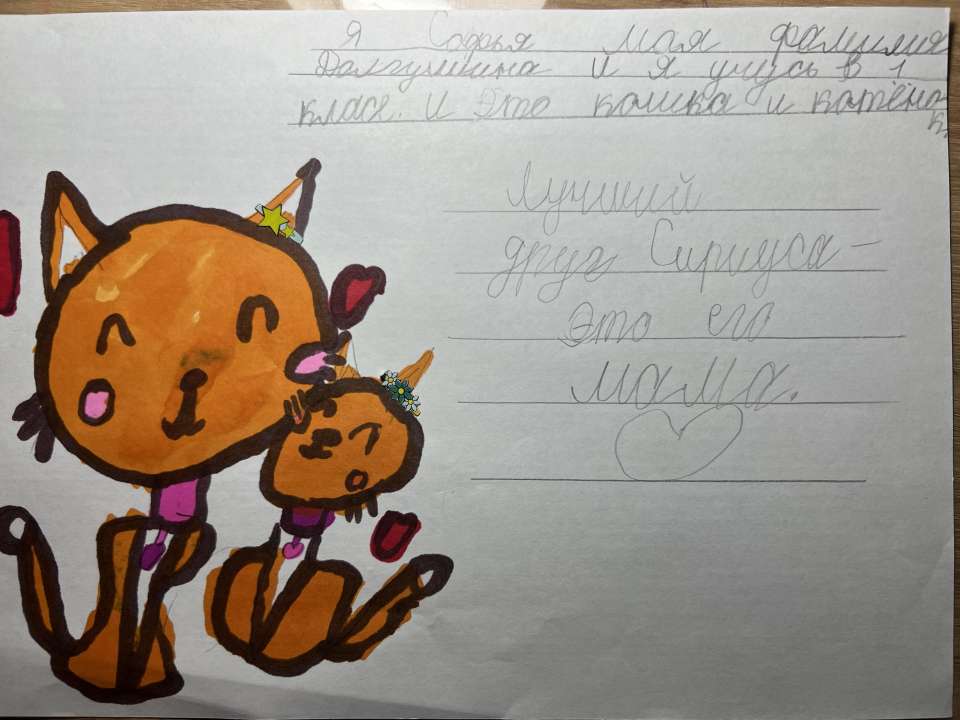 Я Софья моя фамилия
Долгушина и я учусь в 1
класе. И Это кошка и котёно
к.
Лучший
друг Сириуса –
Это его
мама.